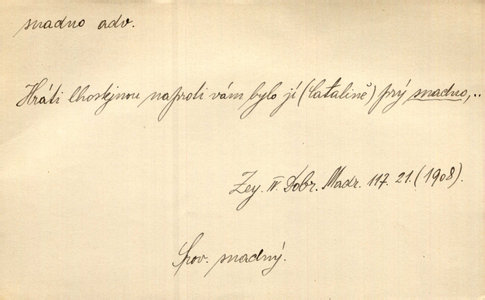 snadno adv.
Hráti lhostejnou naproti vám bylo jí (Catalině) prý snadno,..
Zey. IV Dobr. Madr. 117. 21. (1908).
Srov. snadný.